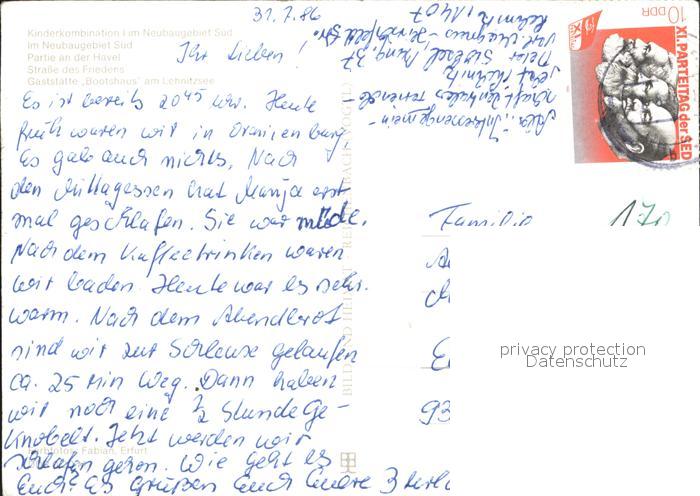 31.7.86
Kinderkombination I im Neubaugebiet Süd
Im Neubaugebiet Süd
Partie an der Havel
Straße des Friedens
Gaststätte „Bootshaus" am Lehnitzsee
Ihr Lieben!
Es ist bereits 20⁴⁵ Uhr. Heute
früh waren wir in Oranienburg,
Es gab auch nichts. Nach
den Mittagessen hat Manja erst
mal geschlafen. Sie war müde.
Nach dem Kaffeetrinken waren
wir baden. Heute war es sehr.
warm. Nach dem Abendbrot
sind wir zur Schleuse gelaufen
ca. 25 Min Weg. Dann haben
wir noch eine ½ Stunde Ge-
knobelt. Jetzt werden wir
schlafen gehen. Wie geht es
Euch? Es grüßen Euch Eure 3
Fabian, Erfurt
BILD UND HEIMAT REICHENBACH
10 DDR
XI. PARTEITAG der SED
Familie
93
privacy protection
Datenschutz